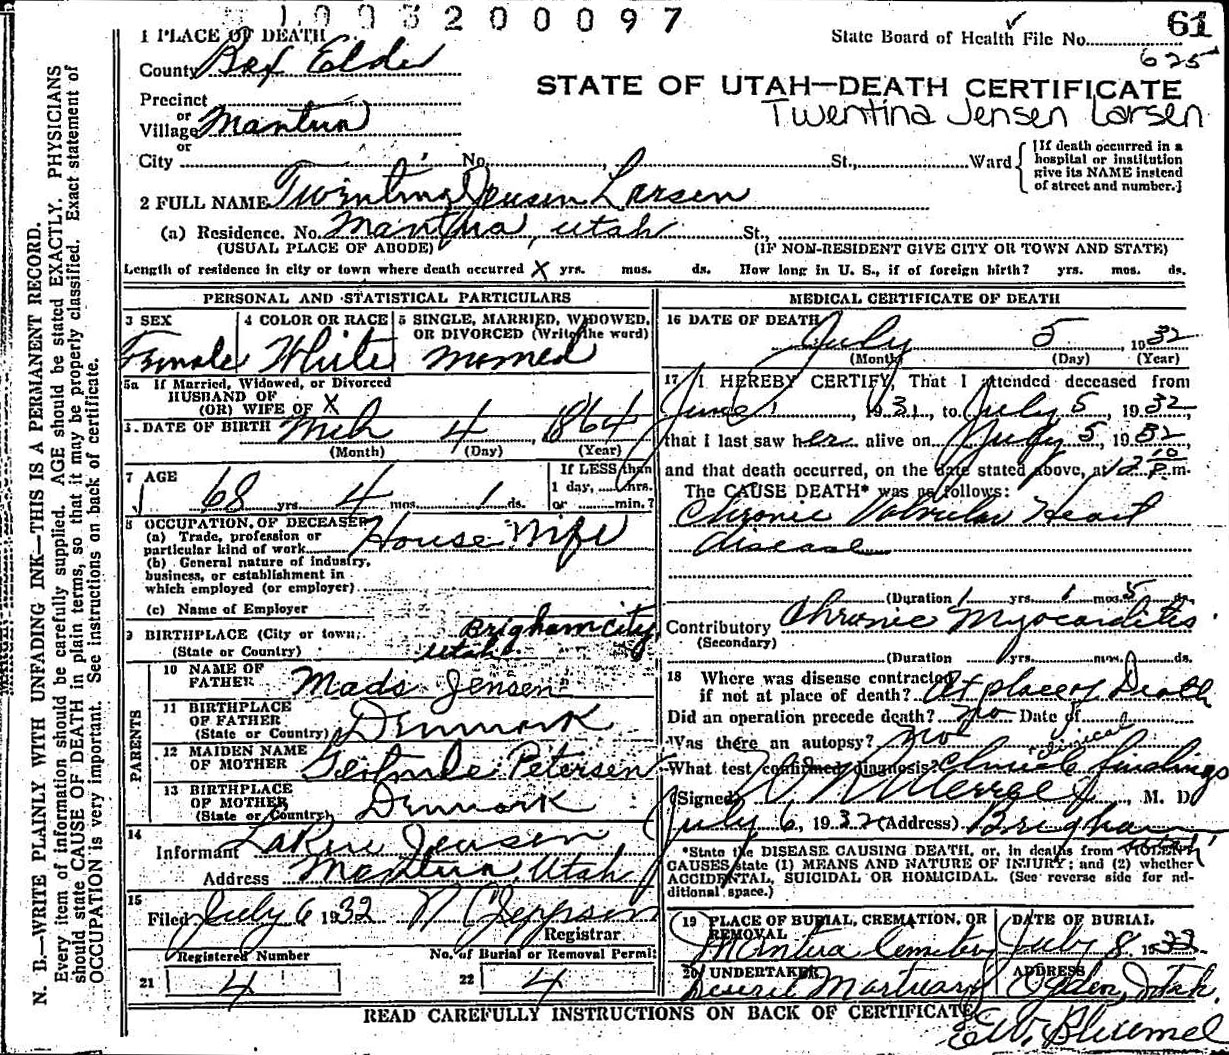 1003200097
61
State Board of Health File No.
625
1 PLACE OF DEATH
County Box Elder
STATE OF UTAH—DEATH CERTIFICATE
Twentina Jensen Larsen
Precinct
or
Village Mantua
or
City No. St., Ward
[If death occurred in a
hospital or institution
give its NAME instead
of street and number.]
2 FULL NAME Twintina Jensen Larsen
(a) Residence. No. Mantua, Utah St.,
(USUAL PLACE OF ABODE) (IF NON-RESIDENT GIVE CITY OR TOWN AND STATE)
Length of residence in city or town where death occurred X yrs. mos. ds. How long in U. S., if of foreign birth? yrs. mos. ds.
PERSONAL AND STATISTICAL PARTICULARS
3 SEX 4 COLOR OR RACE 5 SINGLE, MARRIED, WIDOWED,
OR DIVORCED (Write the word)
Female White
5a If Married, Widowed, or Divorced
HUSBAND OF
(OR) WIFE OF X
6. DATE OF BIRTH Mch 4 1864
(Month) (Day) (Year)
7 AGE If LESS than
1 day, hrs.
68 yrs 4 mos. 1 ds. or min.?
8 OCCUPATION, OF DECEASED House Wife
(a) Trade, profession or
particular kind of work
(b) General nature of industry,
business, or establishment in
which employed (or employer)
(c) Name of Employer
9 BIRTHPLACE (City or town, Brigham City
(State or Country) Utah
PARENTS
10 NAME OF
FATHER Mads Jensen
11 BIRTHPLACE
OF FATHER Denmark
(State or Country)
12 MAIDEN NAME
OF MOTHER Petersen
13 BIRTHPLACE
OF MOTHER Denmark
(State or Country)
14
Informant Jensen
Address Mantua, Utah
15
Filed July 6 1932 N C Jeppsen
Registrar
Registered Number No. of Burial or Removal Permit
21 4 22 4
MEDICAL CERTIFICATE OF DEATH
16 DATE OF DEATH July 5, 1932
(Month) (Day) (Year)
17 I HEREBY CERTIFY, That I attended deceased from
June 1, 1931, to July 5, 1932,
that I last saw her alive on July 5, 1932,
and that death occurred, on the date stated above, at 12 10 P.m.
The CAUSE DEATH* was as follows:
Chronic Valvular Heart
disease
(Duration 1 yrs. 1 mos. 5 ds.
Contributory Chronic Myocarditis
(Secondary)
(Duration yrs. mos. ds.
18 Where was disease contracted
if not at place of death? At place of Death
Did an operation precede death? no Date of
Was there an autopsy? no
clinical
What test confirmed diagnosis? Clinical findings
(Signed) M. D.
July 6, 1932 (Address) Brigham
*State the DISEASE CAUSING DEATH, or, in deaths from VIOLENT
CAUSES state (1) MEANS AND NATURE OF INJURY; and (2) whether
ACCIDENTAL, SUICIDAL OR HOMICIDAL. (See reverse side for ad-
ditional space.)
19 PLACE OF BURIAL, CREMATION, OR
REMOVAL DATE OF BURIAL
Mantua Cemetery July 8 1932
20 UNDERTAKER ADDRESS
Deseret Mortuary Ogden, Utah.
READ CAREFULLY INSTRUCTIONS ON BACK OF CERTIFICATE
E W. Bluemel
N. B.—WRITE PLAINLY WITH UNFADING INK—THIS IS A PERMANENT RECORD.
Every item of information should be carefully supplied. AGE should be stated EXACTLY. PHYSICIANS
should state CAUSE OF DEATH in plain terms, so that it may be properly classified. Exact statement of
OCCUPATION is very important. See instructions on back of certificate.